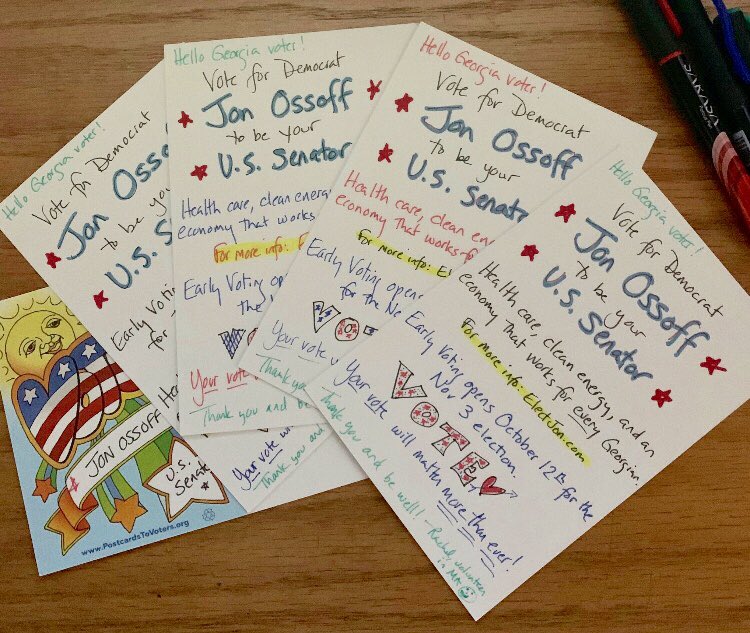 Hello Georgia voter!
Vote for Democrat
Jon Ossoff
to be your
U.S. Senator
Health care, clean energy, and an
economy that works for every Georgian
For more info: ElectJon.com
Early Voting opens October 12th for the
Nov 3 election.
VOTE
Your vote will matter more than ever!
Thank you and be well! - Rachel, volunteer
in MA
Hello Georgia voter!
Vote for Democrat
Jon Ossoff
to be your
U.S. Senator
Health care, clean en
economy that works f
For more info: Ele
Early Voting opens
for the No
VO
Your vote w
Thank you
Hello Georgia voter!
Vote for Democrat
Jon Ossoff
to be your
U.S. Senator
Health care, clean energ
economy that works
For more info: E
Early Voting opens
the
V
Your vote
Thank you and be
Hello Georgia voter!
Vote for Democrat
Jon Osso
to be your
U.S.
Early Voti
for
Your vote wi
Thank you and
JON OSSOFF
U.S.
Senate
www.PostcardsToVoters.org
SARASA